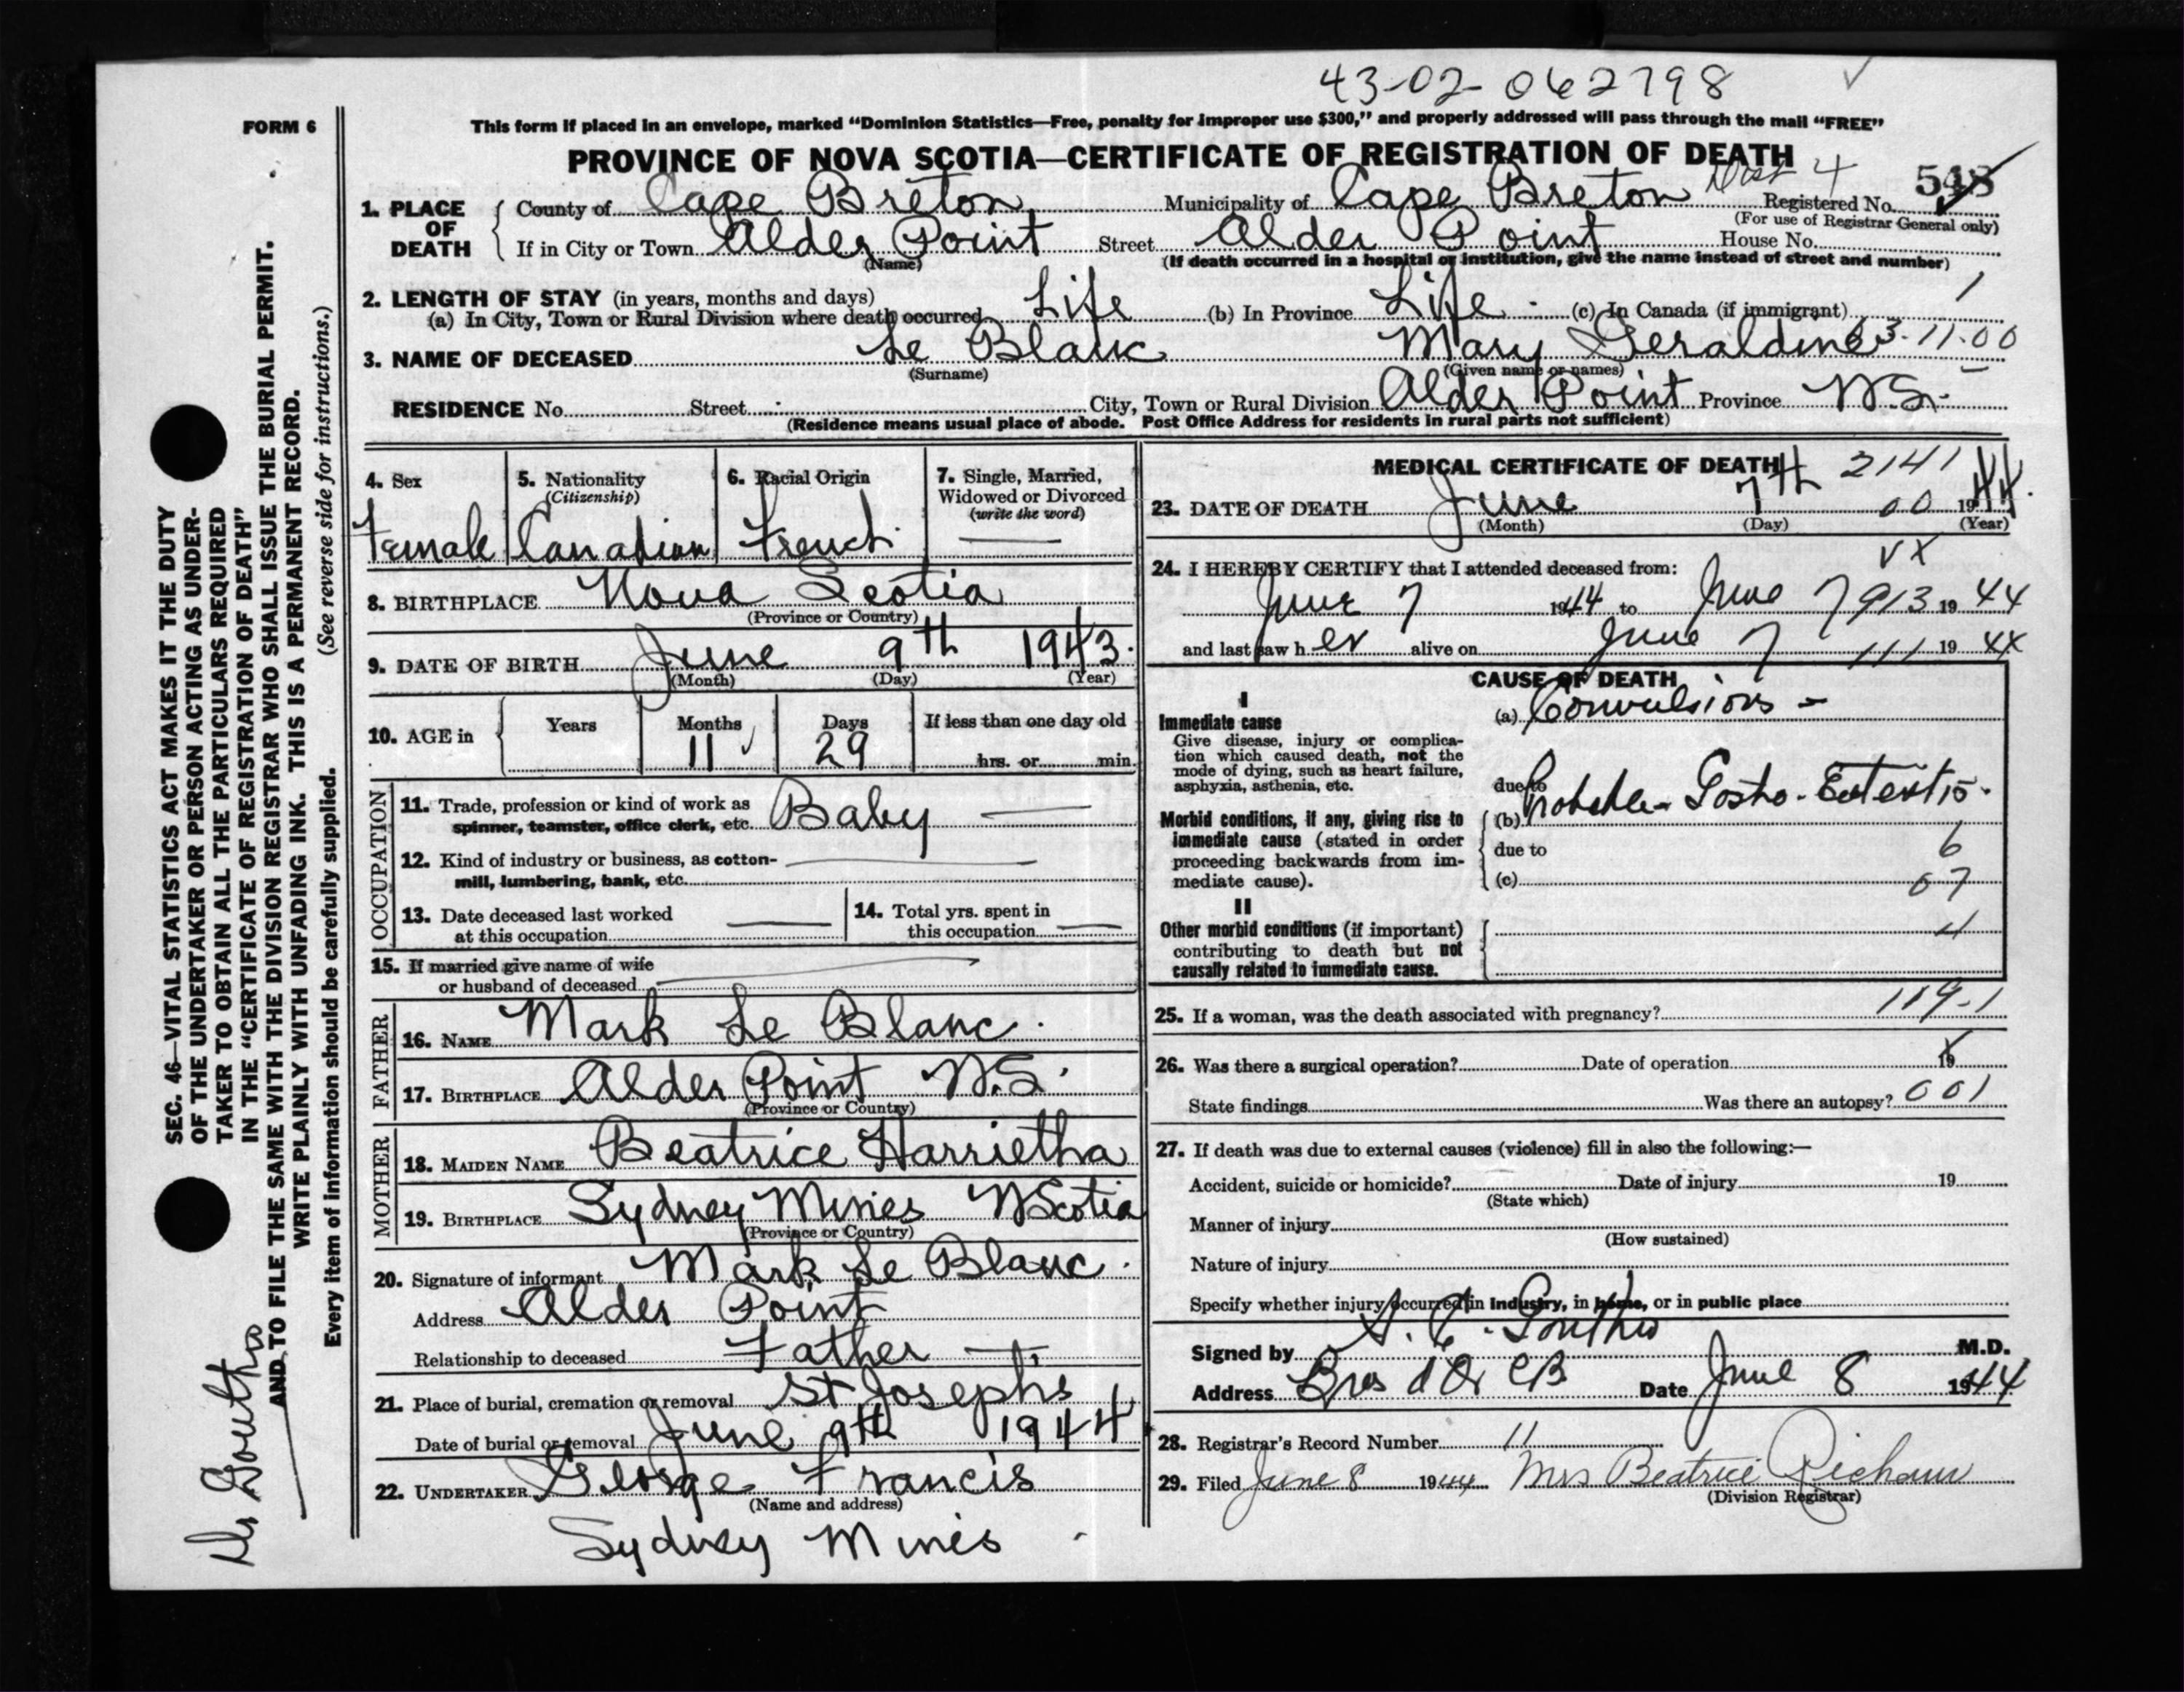 43-02-062798
FORM 6
This form if placed in an envelope, marked “Dominion Statistics—Free, penalty for improper use $300,” and properly addressed will pass through the mail “FREE”
PROVINCE OF NOVA SCOTIA—CERTIFICATE OF REGISTRATION OF DEATH
Dist 4
548
1. PLACE OF DEATH
County of Cape Breton Municipality of Cape Breton Registered No.
(For use of Registrar General only)
If in City or Town Alder Point Street Alder Point House No.
(Name) (If death occurred in a hospital or institution, give the name instead of street and number)
2. LENGTH OF STAY (in years, months and days)
(a) In City, Town or Rural Division where death occurred Life (b) In Province Life (c) In Canada (if immigrant) 1
3. NAME OF DECEASED Le Blanc Mary Geraldine 3-11-00
(Surname) (Given name or names)
RESIDENCE No. Street City, Town or Rural Division Alder Point Province N.S.
(Residence means usual place of abode. Post Office Address for residents in rural parts not sufficient)
4. Sex
Female
5. Nationality
(Citizenship)
Canadian
6. Racial Origin
French
7. Single, Married, Widowed or Divorced
(write the word)
8. BIRTHPLACE Nova Scotia
(Province or Country)
9. DATE OF BIRTH June 9th 1943.
(Month) (Day) (Year)
10. AGE in Years Months Days If less than one day old
11 29 hrs. or min.
OCCUPATION
11. Trade, profession or kind of work as
spinner, teamster, office clerk, etc. Baby
12. Kind of industry or business, as cotton-
mill, lumbering, bank, etc.
13. Date deceased last worked
at this occupation
14. Total yrs. spent in
this occupation
15. If married give name of wife
or husband of deceased
FATHER
16. NAME Mark Le Blanc.
17. BIRTHPLACE Alder Point N.S.
(Province or Country)
MOTHER
18. MAIDEN NAME Beatrice Harrietha
19. BIRTHPLACE Sydney Mines N Scotia
(Province or Country)
20. Signature of informant Mark Le Blanc.
Address Alder Point
Relationship to deceased Father
21. Place of burial, cremation or removal St Josephs
Date of burial or removal June 9th 1944
22. UNDERTAKER George Francis
(Name and address)
Sydney Mines
MEDICAL CERTIFICATE OF DEATH
2141
23. DATE OF DEATH June 7th 00 1944.
(Month) (Day) (Year)
24. I HEREBY CERTIFY that I attended deceased from:
VX
June 7 1944 to June 7 913 19 44
and last saw her alive on June 7 111 19 44
CAUSE OF DEATH
I
Immediate cause
Give disease, injury or complica-
tion which caused death, not the
mode of dying, such as heart failure,
asphyxia, asthenia, etc.
(a) Convulsions -
due to
Morbid conditions, if any, giving rise to
immediate cause (stated in order
proceeding backwards from im-
mediate cause).
(b)
due to 6
(c) 07
II
Other morbid conditions (if important)
contributing to death but not
causally related to immediate cause.
4
25. If a woman, was the death associated with pregnancy? 119-1
26. Was there a surgical operation? Date of operation 19
State findings Was there an autopsy? 001
27. If death was due to external causes (violence) fill in also the following:—
Accident, suicide or homicide? Date of injury 19
(State which)
Manner of injury
(How sustained)
Nature of injury
Specify whether injury occurred in Industry, in home, or in public place
Signed by M.D.
Address Bras d'Or CB Date June 8 1944
28. Registrar's Record Number 11
29. Filed June 8 1944 Mrs Beatrice
(Division Registrar)
SEC. 46—VITAL STATISTICS ACT MAKES IT THE DUTY
OF THE UNDERTAKER OR PERSON ACTING AS UNDER-
TAKER TO OBTAIN ALL THE PARTICULARS REQUIRED
IN THE “CERTIFICATE OF REGISTRATION OF DEATH”
AND TO FILE THE SAME WITH THE DIVISION REGISTRAR WHO SHALL ISSUE THE BURIAL PERMIT.
WRITE PLAINLY WITH UNFADING INK. THIS IS A PERMANENT RECORD.
Every item of information should be carefully supplied. (See reverse side for instructions.)
Dr